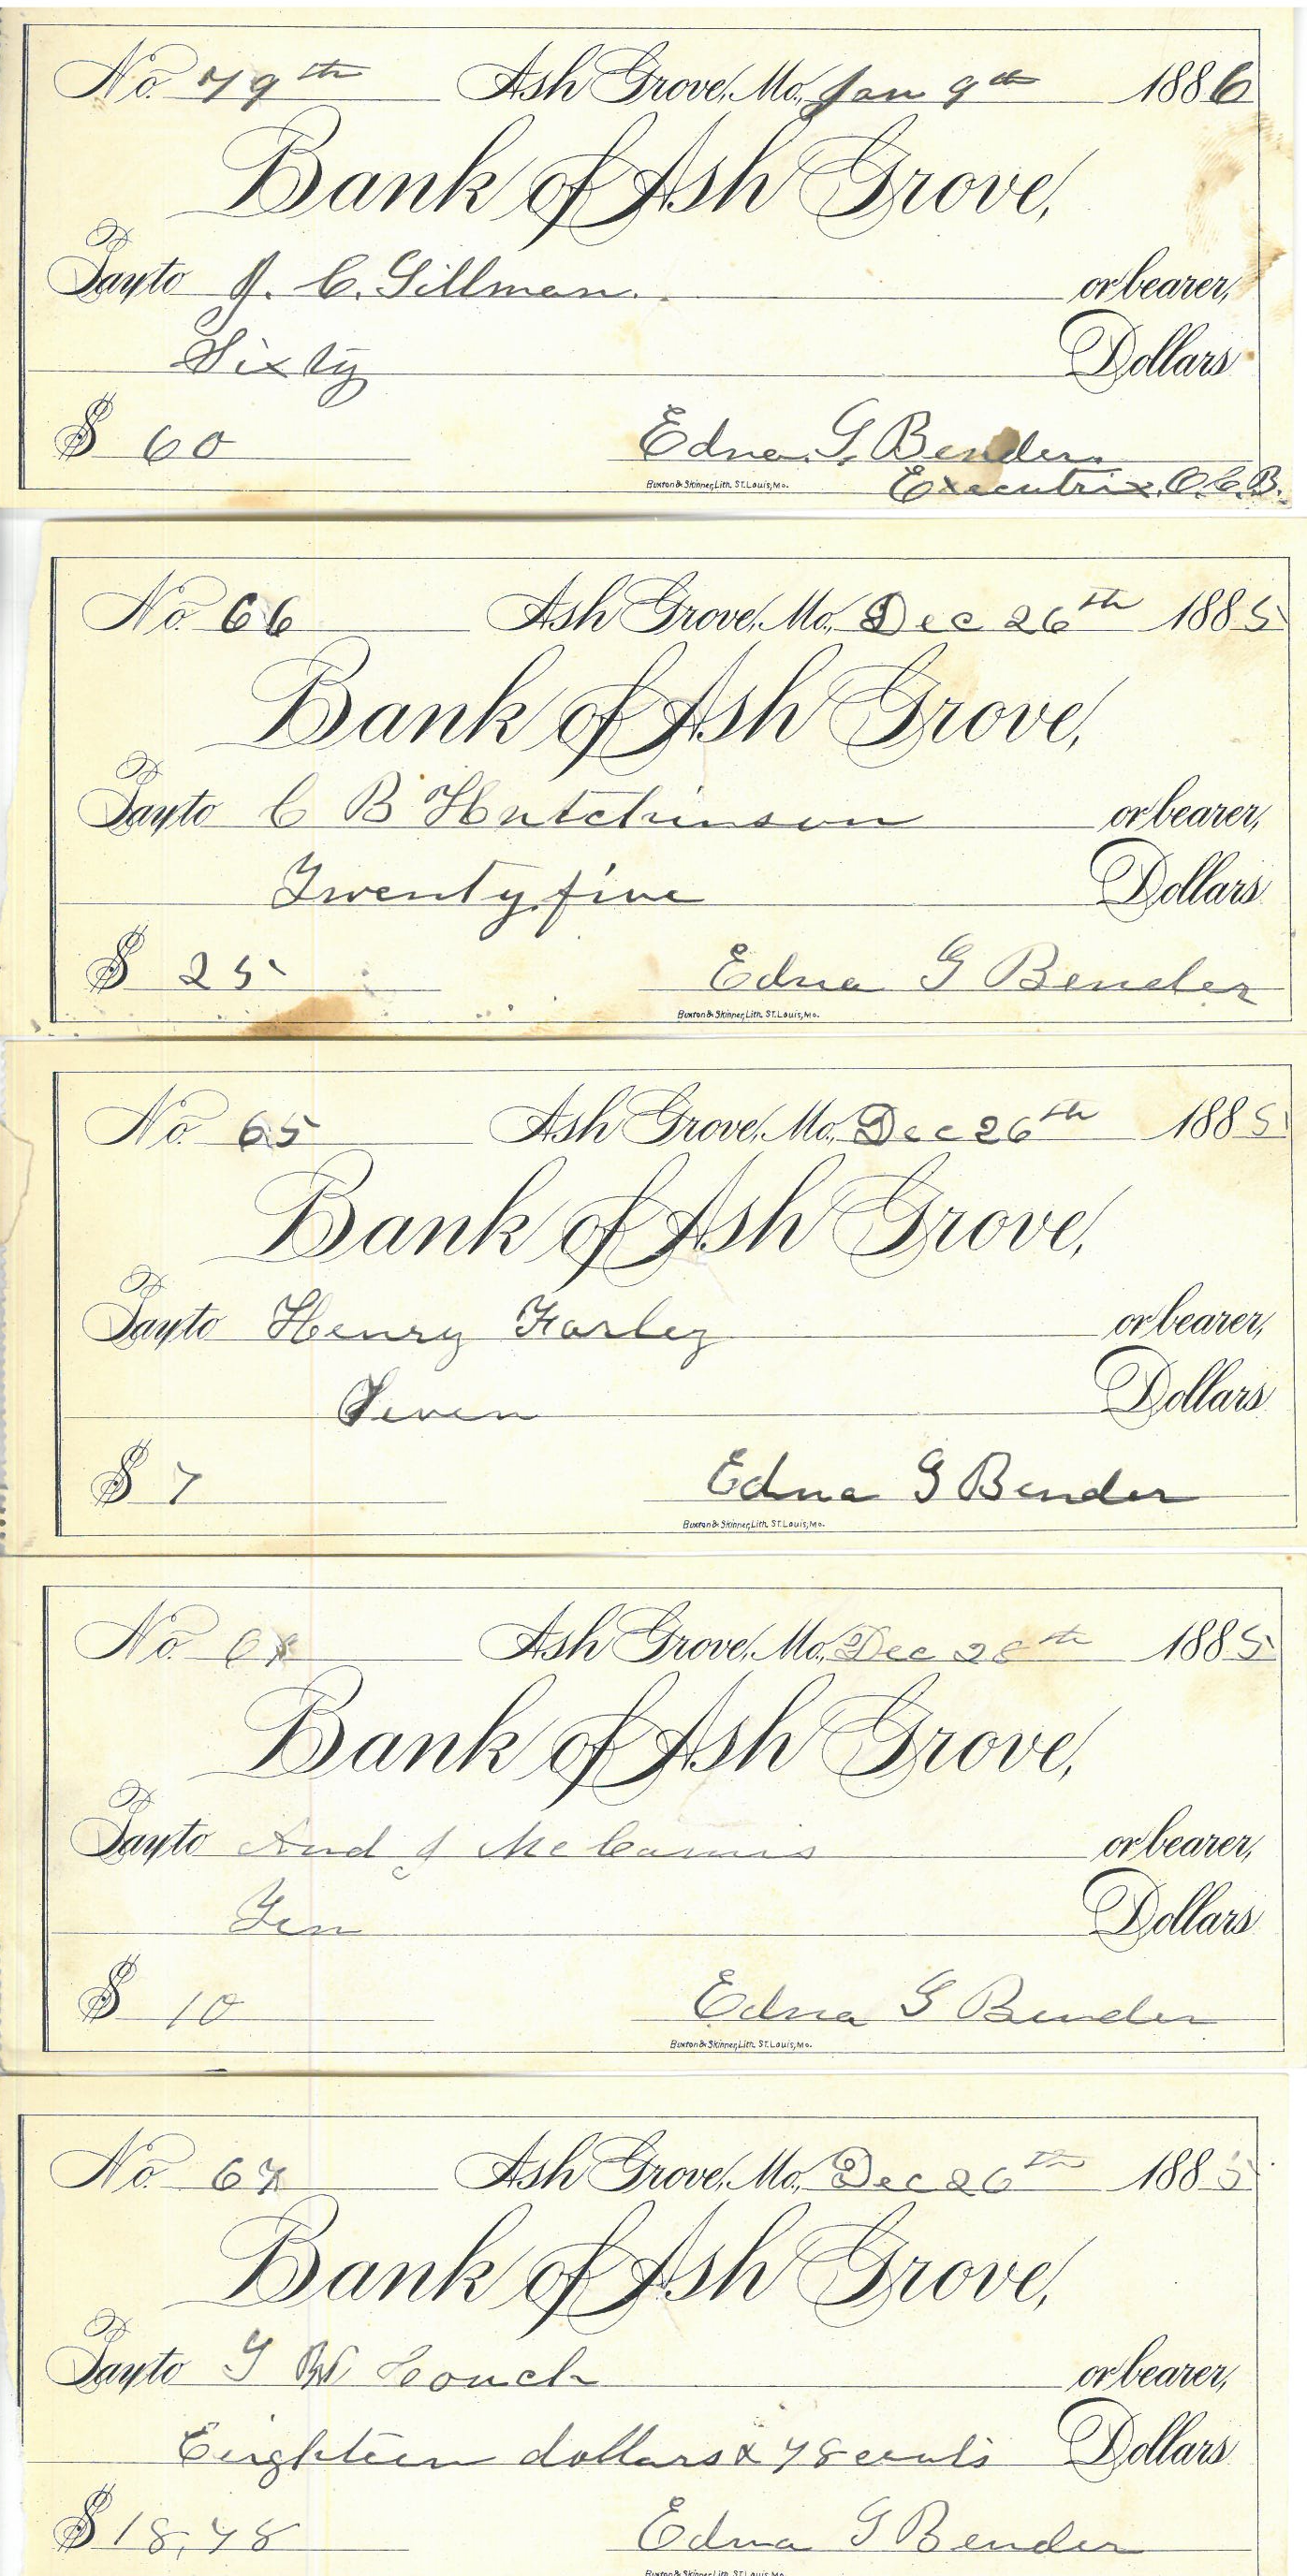 No. 79th Ash Grove, Mo., Jan 9th 1886
Bank of Ash Grove,
Pay to J. C. Gillman. or bearer,
Sixty Dollars
$ 60 Edna G. Bender.
Buxton & Skinner, Lith. St. Louis, Mo. Executrix, O.C.B.
No. 66 Ash Grove, Mo., Dec 26th 1885
Bank of Ash Grove,
Pay to C B Hutchinson or bearer,
Twenty five Dollars
$ 25 Edna G Bender
Buxton & Skinner, Lith. St. Louis, Mo.
No. 65 Ash Grove, Mo., Dec 26th 1885
Bank of Ash Grove,
Pay to Henry Farley or bearer,
Seven Dollars
$ 7 Edna G Bender
Buxton & Skinner, Lith. St. Louis, Mo.
No. Ash Grove, Mo., Dec 1885
Bank of Ash Grove,
Pay to And J McCamis or bearer,
Ten Dollars
$ 10 Edna G Bender
Buxton & Skinner, Lith. St. Louis, Mo.
No. Ash Grove, Mo., Dec 26th 1885
Bank of Ash Grove,
Pay to G W or bearer,
Eighteen dollars & 48 cents Dollars
$ 18,48 Edna G Bender
Buxton & Skinner, Lith. St. Louis, Mo.